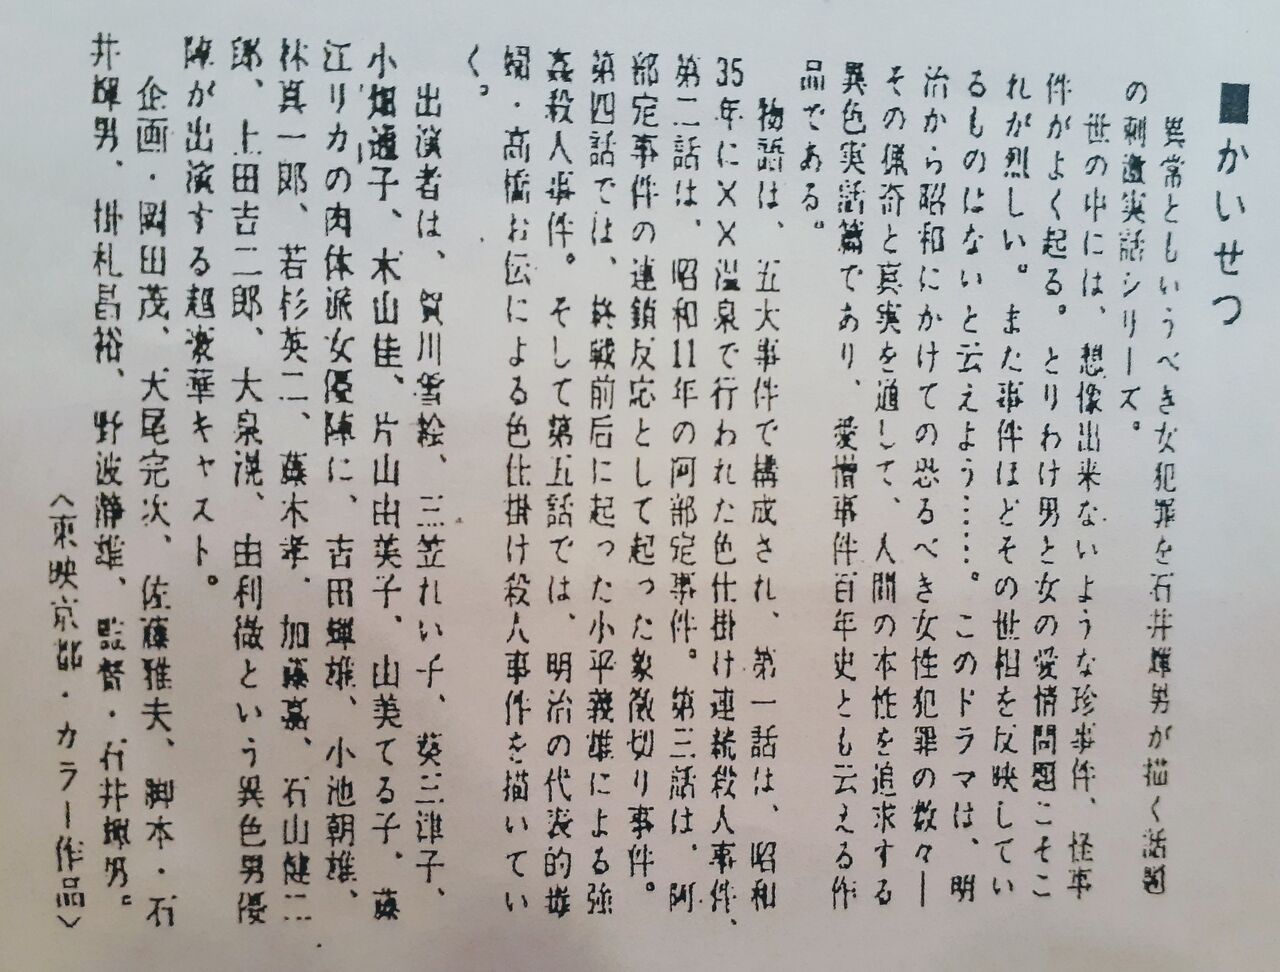 ■かいせつ
異常ともいうべき女犯罪を石井輝男が描く話題
の刺激実話シリーズ。
世の中には、想像出来ないような珍事件、怪事
件がよく起る。とりわけ男と女の愛情問題こそこ
れが烈しい。また事件ほどその世相を反映してい
るものはないと云えよう……。このドラマは、明
治から昭和にかけての恐るべき女性犯罪の数々―
その猟奇と真実を通して、人間の本性を追求する
異色実話篇であり、愛憎事件百年史とも云える作
品である。
物語は、五大事件で構成され、第一話は、昭和
35年に××温泉で行われた色仕掛け連続殺人事件、
第二話は、昭和11年の阿部定事件。第三話は、阿
部定事件の連鎖反応として起った象徴切り事件。
第四話では、終戦前后に起った小平義雄による強
姦殺人事件。そして第五話では、明治の代表的毒
婦・高橋お伝による色仕掛け殺人事件を描いてい
く。
出演者は、賀川雪絵、三笠れい子、葵三津子、
小畑通子、木山佳、片山由美子、山美てる子、藤
江リカの肉体派女優陣に、吉田輝雄、小池朝雄、
林真一郎、若杉英二、藤木孝、加藤嘉、石山健二
郎、上田吉二郎、大泉滉、由利徹という異色男優
陣が出演する超豪華キャスト。
企画・岡田茂、天尾完次、佐藤雅夫、脚本・石
井輝男、掛札昌裕、野波静雄、監督・石井輝男。
〈東映京都・カラー作品〉